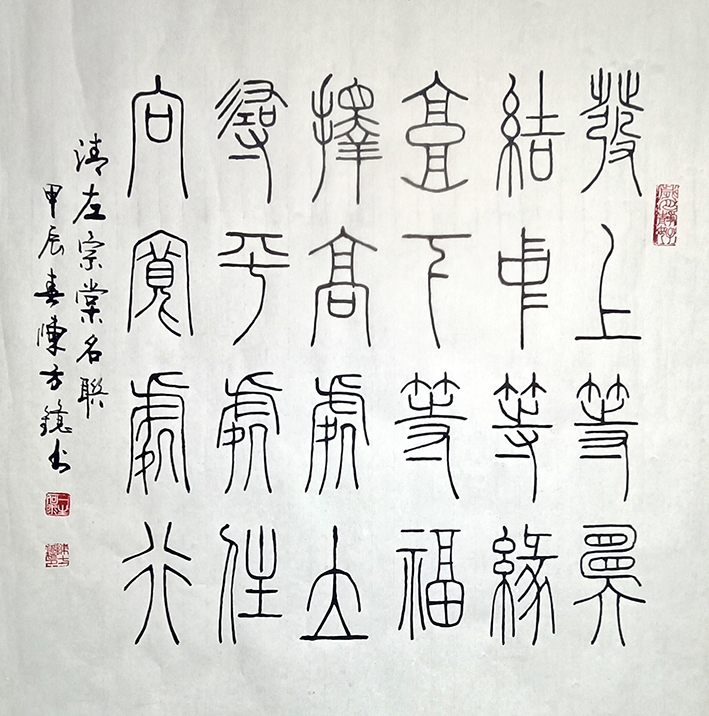 發上等願
結中等緣
享下等福
擇高處立
尋平處住
向寬處行
清左宗棠名聯
甲辰春陳方書